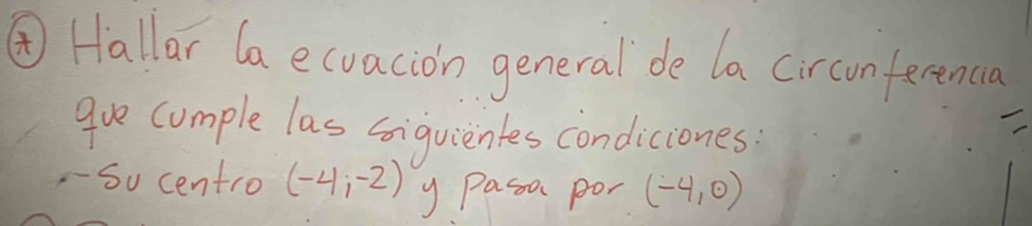 ⑦ Hallar la ecuación general de la circunferencia
que cumple las siguientes condiciones:
- Su centro (-4;-2) y pasa por (-4,0)